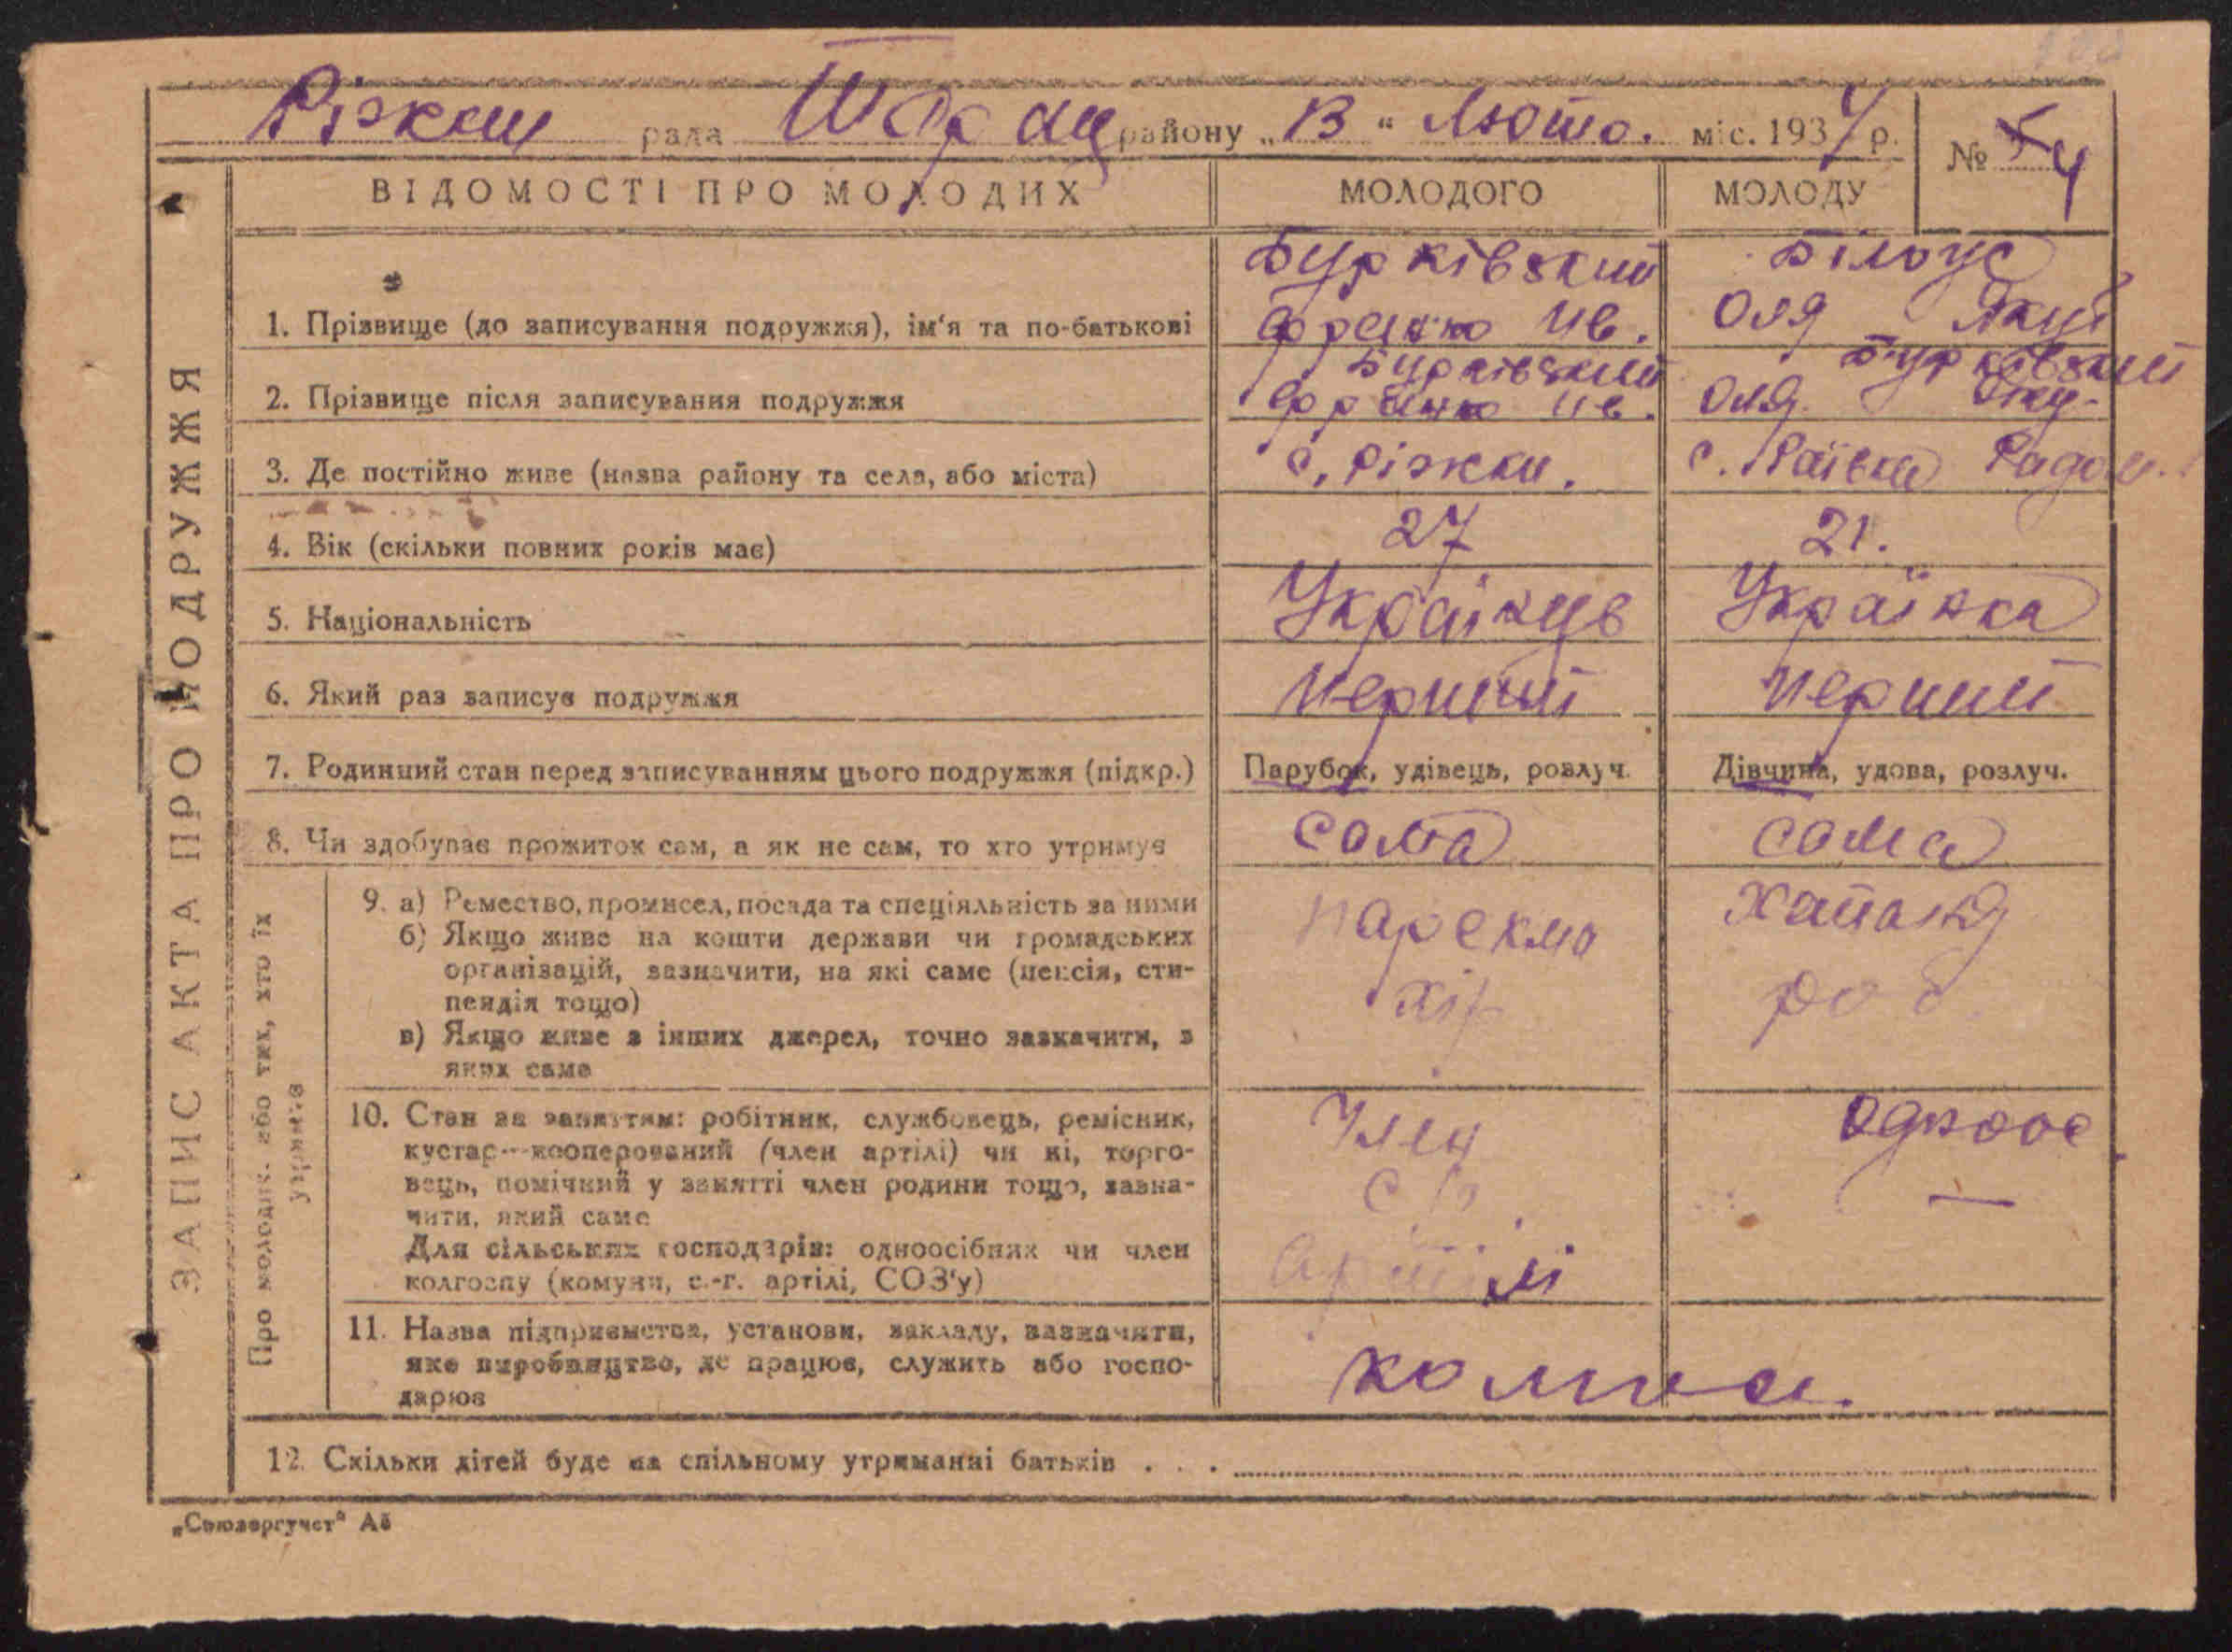 Ріжки рада району „13“ Люто. міс. 1934 р. № 4
ЗАПИС АКТА ПРО ПОДРУЖЖЯ
ВІДОМОСТІ ПРО МОЛОДИХ МОЛОДОГО МОЛОДУ
1. Прізвище (до записування подружжя), ім'я та по-батькові Бурківский Франко Ив. Білоус Оля Якуб
2. Прізвище після записування подружжя Бурківский Франко Ив. Бурківский Оля Яку-
3. Де постійно живе (назва району та села, або міста) с. Ріжки. с. Раівка Радом.
4. Вік (скільки повних років має) 27 21.
5. Національність Українць Українка
6. Який раз записує подружжя Перший Перший
7. Родинний стан перед записуванням цього подружжя (підкр.) Парубок, удівець, розлуч. Дівчина, удова, розлуч.
8. Чи здобуває прожиток сам, а як не сам, то хто утримує сама сама
Про молодих або тих, хто їх утримує
9. а) Ремество, промисел, посада та спеціяльність за ними
б) Якщо живе на кошти держави чи громадських
організацій, зазначити, на які саме (пенсія, сти-
пендія тощо)
в) Якщо живе з інших джерел, точно зазначити, з
яких саме
парекма
хір
роб.
10. Стан за заняттям: робітник, службовець, ремісник,
кустар—кооперований (член артілі) чи ні, торго-
вець, помічний у занятті член родини тощо, зазна-
чити, який саме
Для сільських господарів: одноосібник чи член
колгоспу (комуни, с.-г. артілі, СОЗ'у)
Член
с/г
артілі
одноос
—
11. Назва підприємства, установи, закладу, зазначити,
яке виробництво, де працює, служить або госпо-
дарює
12. Скільки дітей буде на спільному утриманні батьків . . .
„Союзоргучет“ Аб